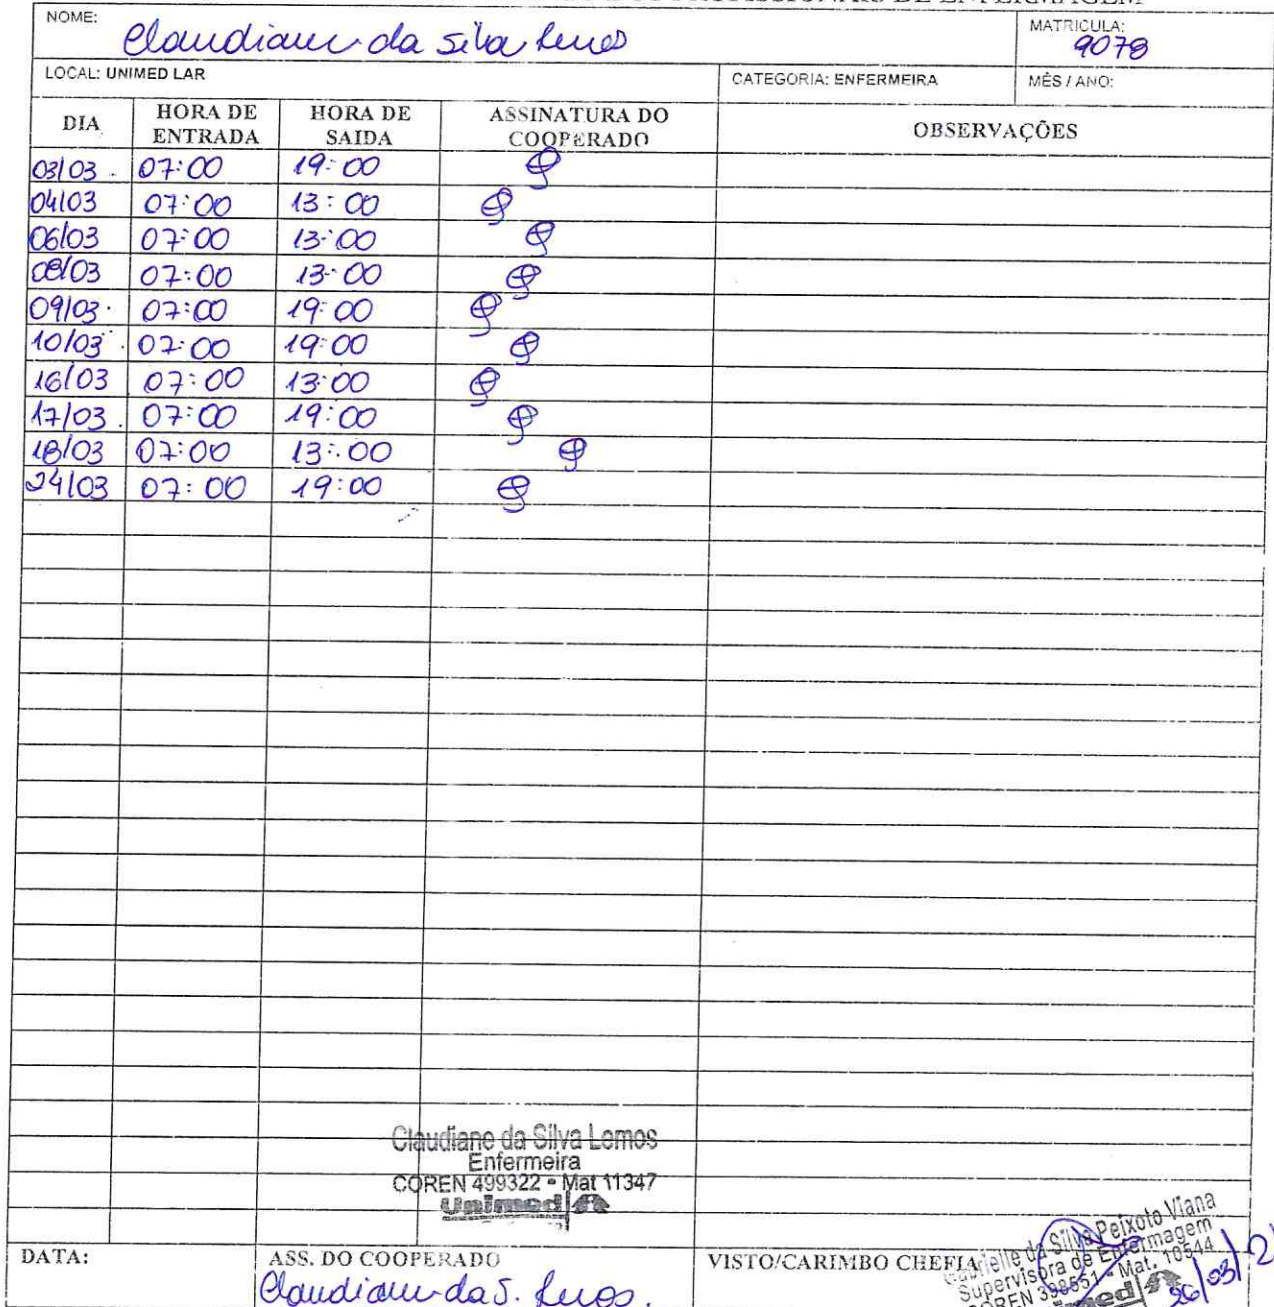 PROFISSIONAIS DE ENFERMAGEM
NOME: Claudiane da Silva Lemos
MATRICULA: 9078
LOCAL: UNIMED LAR
CATEGORIA: ENFERMEIRA
MÊS / ANO:
DIA HORA DE ENTRADA HORA DE SAIDA ASSINATURA DO COOPERADO OBSERVAÇÕES
03/03 07:00 19:00
04/03 07:00 13:00
06/03 07:00 13:00
08/03 07:00 13:00
09/03 07:00 19:00
10/03 07:00 19:00
16/03 07:00 13:00
17/03 07:00 19:00
18/03 07:00 13:00
24/03 07:00 19:00
Claudiane da Silva Lemos
Enfermeira
COREN 499322 - Mat 11347
Unimed
DATA:
ASS. DO COOPERADO
Claudiane da S. Lemos.
VISTO/CARIMBO CHEFIA
da Silva Peixoto Viana
Supervisora de Enfermagem
COREN 398551 - Mat. 10544
26/03/2